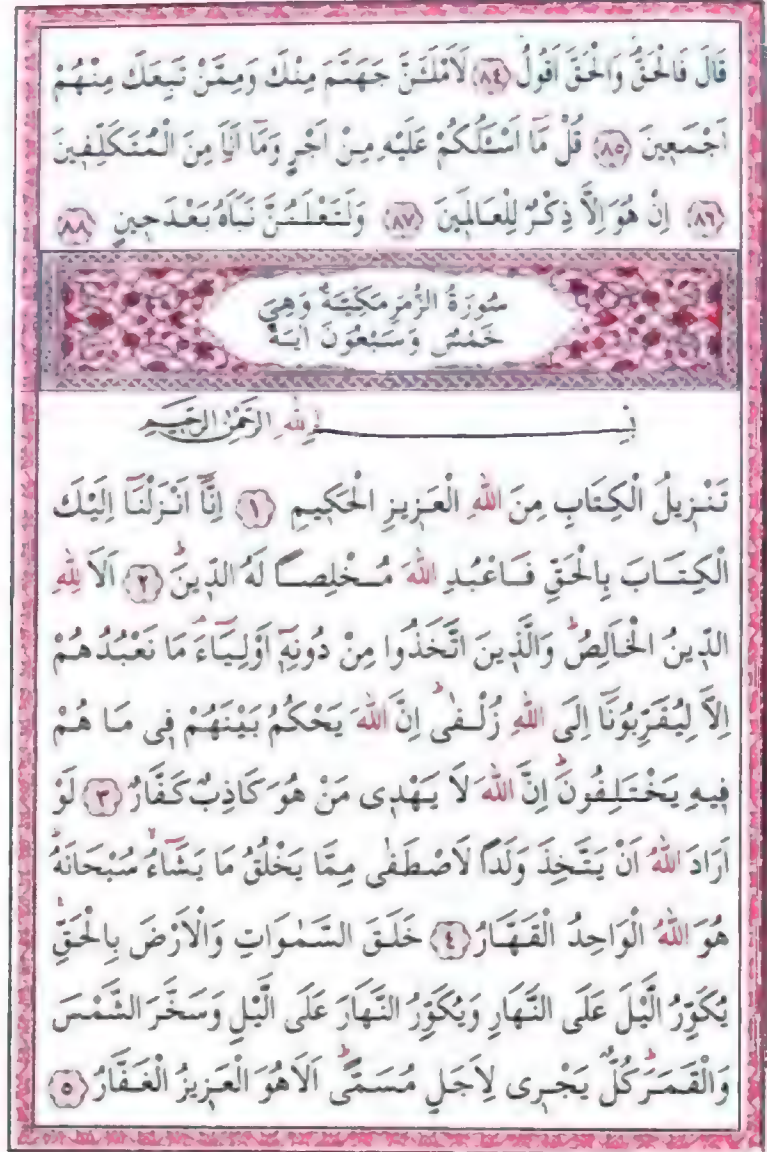 قَالَ فَالْحَقُّ وَالْحَقَّ اَقُولُ ﴿٨٤﴾ لَاَمْلَـَٔنَّ جَهَنَّمَ مِنْكَ وَمِمَّنْ تَبِعَكَ مِنْهُمْ
اَجْمَعٖينَ ﴿٨٥﴾ قُلْ مَٓا اَسْـَٔلُكُمْ عَلَيْهِ مِنْ اَجْرٍ وَمَٓا اَنَا۬ مِنَ الْمُتَكَلِّفٖينَ
﴿٨٦﴾ اِنْ هُوَ اِلَّا ذِكْرٌ لِلْعَالَمٖينَ ﴿٨٧﴾ وَلَتَعْلَمُنَّ نَبَاَهُ بَعْدَ حٖينٍ ﴿٨٨﴾
سُورَةُ الزُّمَرِ مَكِّيَّةٌ وَهِيَ
خَمْسٌ وَسَبْعُونَ اٰيَةً
بِسْمِ اللّٰهِ الرَّحْمٰنِ الرَّحٖيمِ
تَنْزٖيلُ الْكِتَابِ مِنَ اللّٰهِ الْعَزٖيزِ الْحَكٖيمِ ﴿١﴾ اِنَّٓا اَنْزَلْنَٓا اِلَيْكَ
الْكِتَابَ بِالْحَقِّ فَاعْبُدِ اللّٰهَ مُخْلِصًا لَهُ الدّٖينَۜ ﴿٢﴾ اَلَا لِلّٰهِ
الدّٖينُ الْخَالِصُۜ وَالَّذٖينَ اتَّخَذُوا مِنْ دُونِهٖٓ اَوْلِيَٓاءَۢ مَا نَعْبُدُهُمْ
اِلَّا لِيُقَرِّبُونَٓا اِلَى اللّٰهِ زُلْفٰىۜ اِنَّ اللّٰهَ يَحْكُمُ بَيْنَهُمْ فٖى مَا هُمْ
فٖيهِ يَخْتَلِفُونَۜ اِنَّ اللّٰهَ لَا يَهْدٖى مَنْ هُوَ كَاذِبٌ كَفَّارٌ ﴿٣﴾ لَوْ
اَرَادَ اللّٰهُ اَنْ يَتَّخِذَ وَلَدًا لَاصْطَفٰى مِمَّا يَخْلُقُ مَا يَشَٓاءُۙ سُبْحَانَهُۜ
هُوَ اللّٰهُ الْوَاحِدُ الْقَهَّارُ ﴿٤﴾ خَلَقَ السَّمٰوَاتِ وَالْاَرْضَ بِالْحَقِّۚ
يُكَوِّرُ الَّيْلَ عَلَى النَّهَارِ وَيُكَوِّرُ النَّهَارَ عَلَى الَّيْلِ وَسَخَّرَ الشَّمْسَ
وَالْقَمَرَۜ كُلٌّ يَجْرٖى لِاَجَلٍ مُسَمًّىۜ اَلَا هُوَ الْعَزٖيزُ الْغَفَّارُ ﴿٥﴾